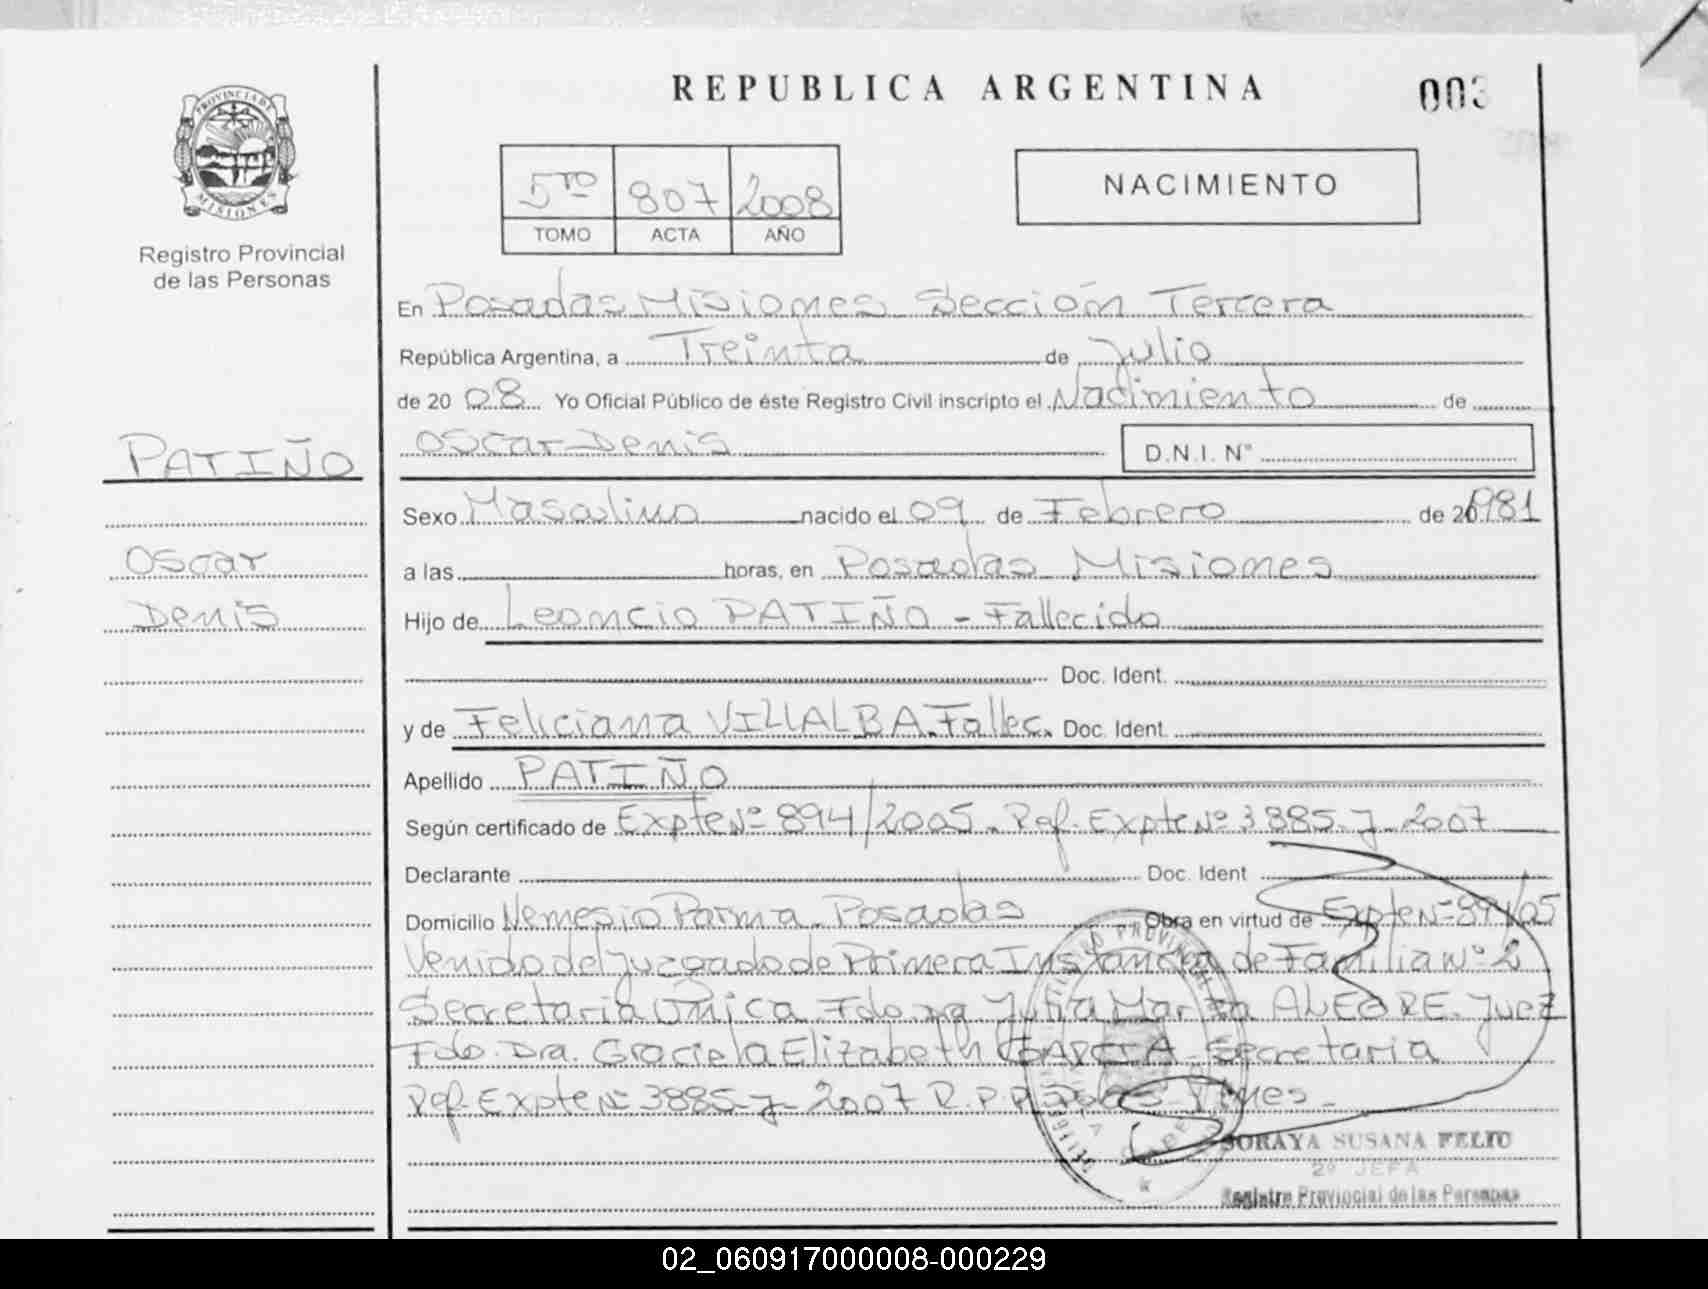 REPUBLICA ARGENTINA
003
PROVINCIA DE MISIONES
Registro Provincial
de las Personas
5TO 807 2008
TOMO ACTA AÑO
NACIMIENTO
En Posadas Misiones Sección Tercera
República Argentina, a Treinta de Julio
de 20 08 Yo Oficial Público de éste Registro Civil inscripto el Nacimiento de
Oscar Denis
D.N.I. N°
PATIÑO
Oscar
Denis
Sexo Masculino nacido el 09 de Febrero de 1981
a las horas, en Posadas Misiones
Hijo de Leoncio PATIÑO - Fallecido
Doc. Ident.
y de Feliciana VILLALBA. Fallec. Doc. Ident.
Apellido PATIÑO
Según certificado de Expte Nº 894/2005. Ref. Expte Nº 3885-J-2007
Declarante Doc. Ident
Domicilio Nemesio Parma - Posadas Obra en virtud de Expte Nº 894/05
Venido del Juzgado de Primera Instancia de Familia Nº 2
Secretaria Única Fdo Julia Marta ALEGRE. Juez
Fdo. Dra. Graciela Elizabeth GARCIA - Secretaria
Ref. Expte Nº 3885-J-2007 R.P.P. Mnes -
SORAYA SUSANA FELIU
2º JEFA
Registro Provincial de las Personas
02_060917000008-000229